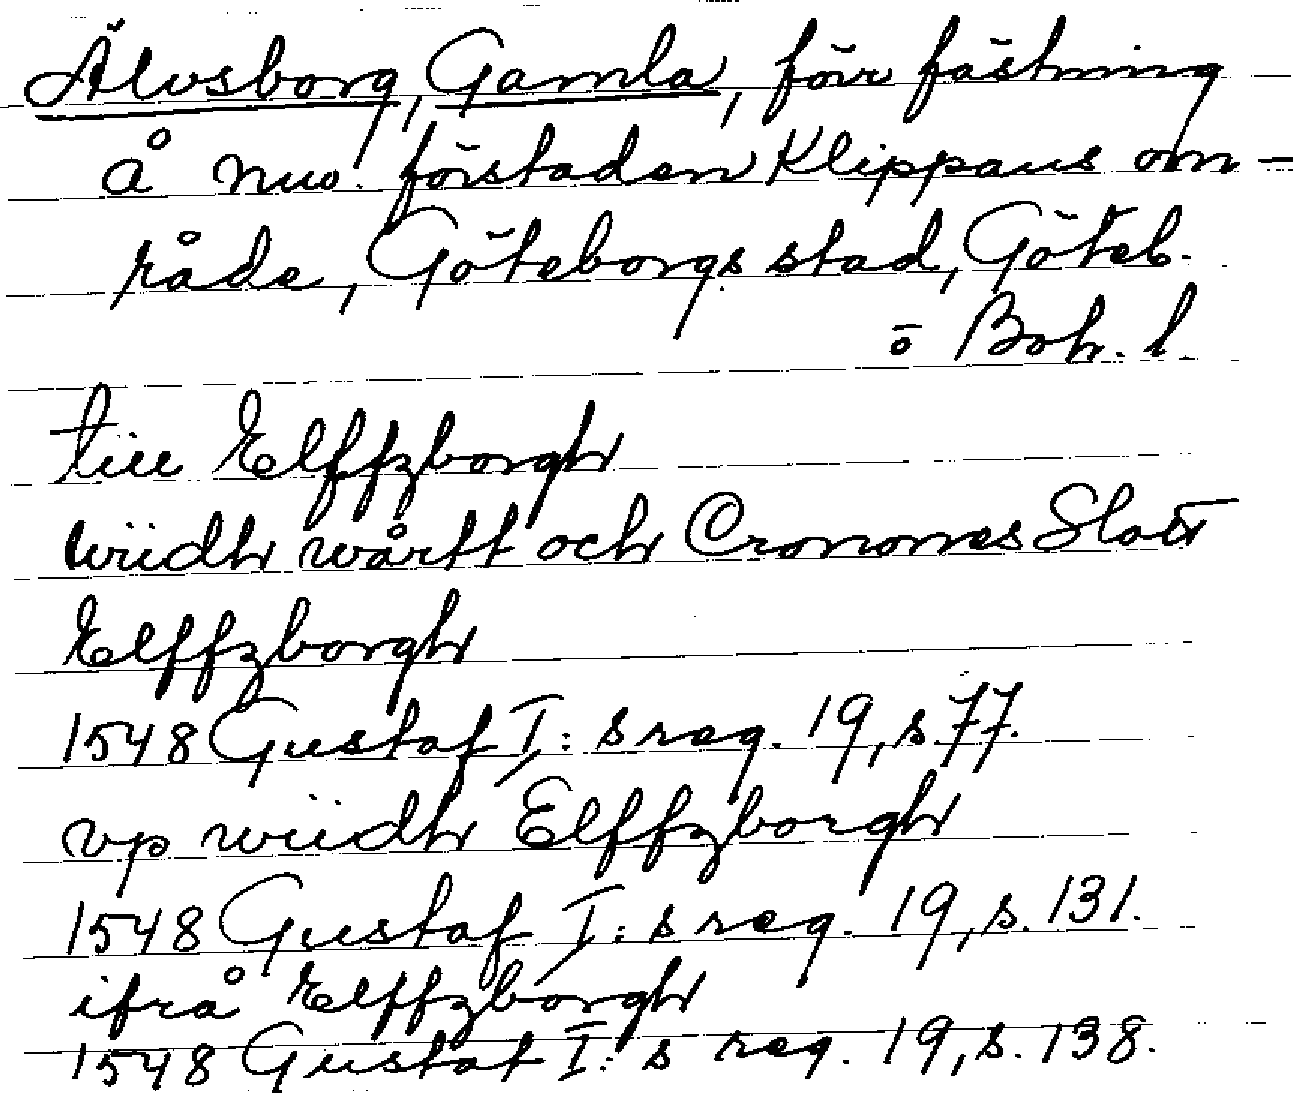 Älvsborg, Gamla, förr fästning
å nuv. förstaden Klippans om-
råde, Göteborgs stad, Göteb.
o Boh. l.
till Elffzborgh
widh wårtt och Cronones Slott
Elffzborgh
1548 Gustaf I:s reg. 19, s. 77.
vp widh Elffzborgh
1548 Gustaf I:s reg. 19, s. 131.
ifrå Elffzborgh
1548 Gustaf I:s reg. 19, s. 138.